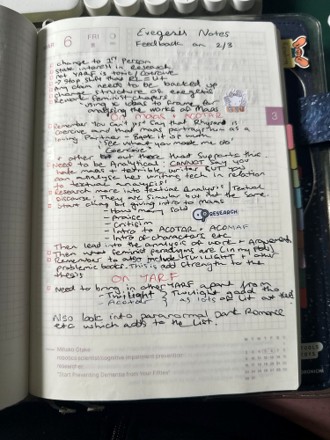 6 FRI
Exegesis Notes
Feedback on 2/3
change to 1st person
state interest in research
not YARF is toxic / coercive
stop shift b/w RL + Lit
Any claim needs to be backed up
change structure of exegesis
Rework feminist chapter
using X ideas to frame for
analysing the works of Maas
On Maas + ACOTAR
Remember You can't just say that Rhysand is
coercive and that Maas portrays them as a
loving Partner - Back it up with
'See what you made me do'
'Coercive'
+ other lit out there that supports this
Need to be analytical. CANNOT say you
hate Maas + terrible writer BUT you
can analyse her writing tech in relation
to textual analysis
research more into Textual Analysis / Textual
Discourse. They are similar but not the same
Start chap by giving intro to Maas
- How many sold
RESEARCH
- praise
- Critisism
- Intro to ACOTAR + ACOMAF
- Intro of characters etc
Then lead into the analysis of work + Arguments
Then what feminist paradigms are (in my pov)
Remember to also include Twilight + other
problematic books. This is add strength to the
thesis
On YARF
Need to bring in other YARF apart from
- Twilight
Also look into paranormal Dark Romance
etc which adds to the list.
3